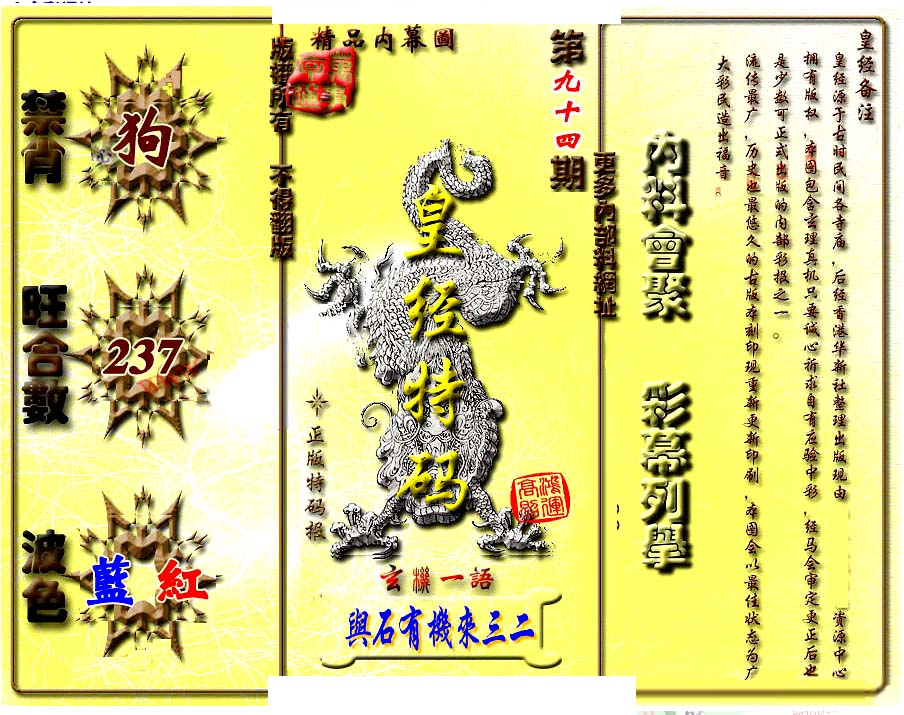 精品内幕圖
第九十四期
版權所有 不得翻版
更多内部料網址
禁肖
狗
旺合數
237
波色
藍 紅
皇经特码
正版特码报
鴻運高照
玄機一語
與石有機來三二
内料會聚
彩幕列舉
皇经备注
皇经源于古时民间各寺庙，后经香港华新社整理出版现由 资源中心
拥有版权，本图包含玄理真机只要诚心祈求自有应验中彩，经马会审定更正后也
是少数可正式出版的内部彩报之一。
流传最广，历史也最悠久的古版本刻印现重新更新印刷，本图会以最佳状态为广
大彩民造出福音